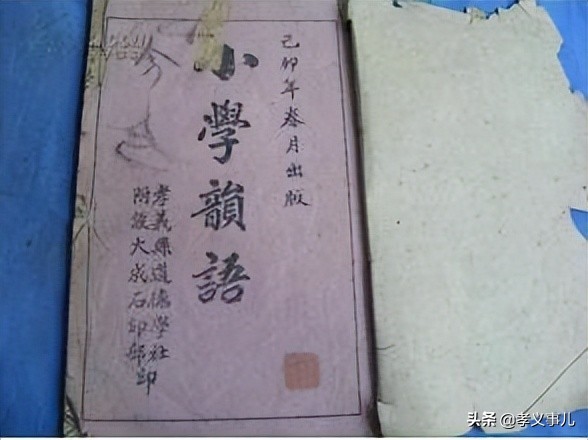 己卯年叁月出版
小學韻語
孝義縣道德學社
附設大成石印部印
头条 @孝义书儿